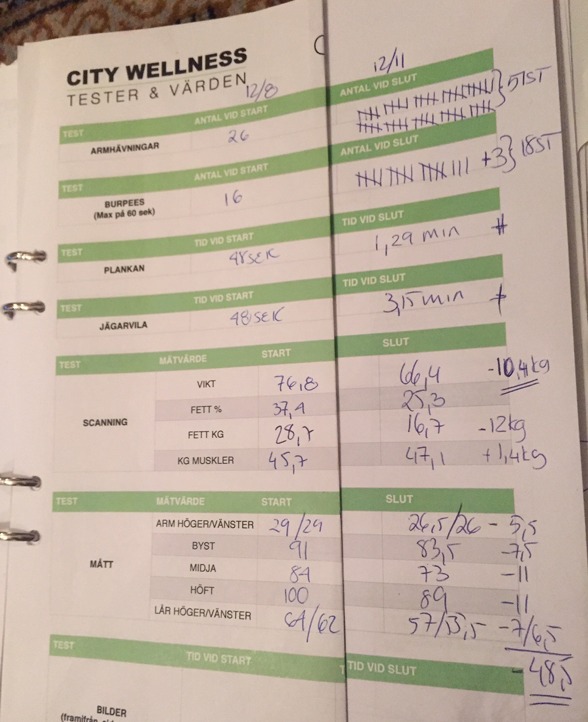 CITY WELLNESS
TESTER & VÄRDEN 12/8 12/11
TEST ANTAL VID START ANTAL VID SLUT
ARMHÄVNINGAR 26 } 51ST
TEST ANTAL VID START ANTAL VID SLUT
BURPEES 16 +3 } 18ST
(Max på 60 sek)
TEST TID VID START TID VID SLUT
PLANKAN 48SEK 1,29 min
TEST TID VID START TID VID SLUT
JÄGARVILA 48SEK 3,15 min
TEST MÄTVÄRDE START SLUT
VIKT 76,8 66,4 -10,4kg
FETT % 37,4 25,3
SCANNING
FETT KG 28,7 16,7 -12kg
KG MUSKLER 45,7 47,1 +1,4kg
TEST MÄTVÄRDE START SLUT
ARM HÖGER/VÄNSTER 29/29 26,5/26 -5,5
BYST 91 83,5 -7,5
MÅTT MIDJA 84 73 -11
HÖFT 100 89 -11
LÅR HÖGER/VÄNSTER 64/62 57/55,5 -7/6,5
-48,5
TEST TID VID START TID VID SLUT
BILDER
(framifrån,